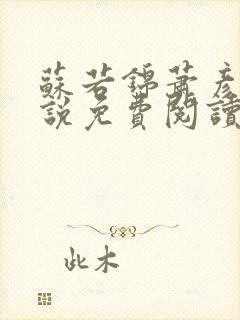 蘇若錦蕭彥
說免費閱讀
此木